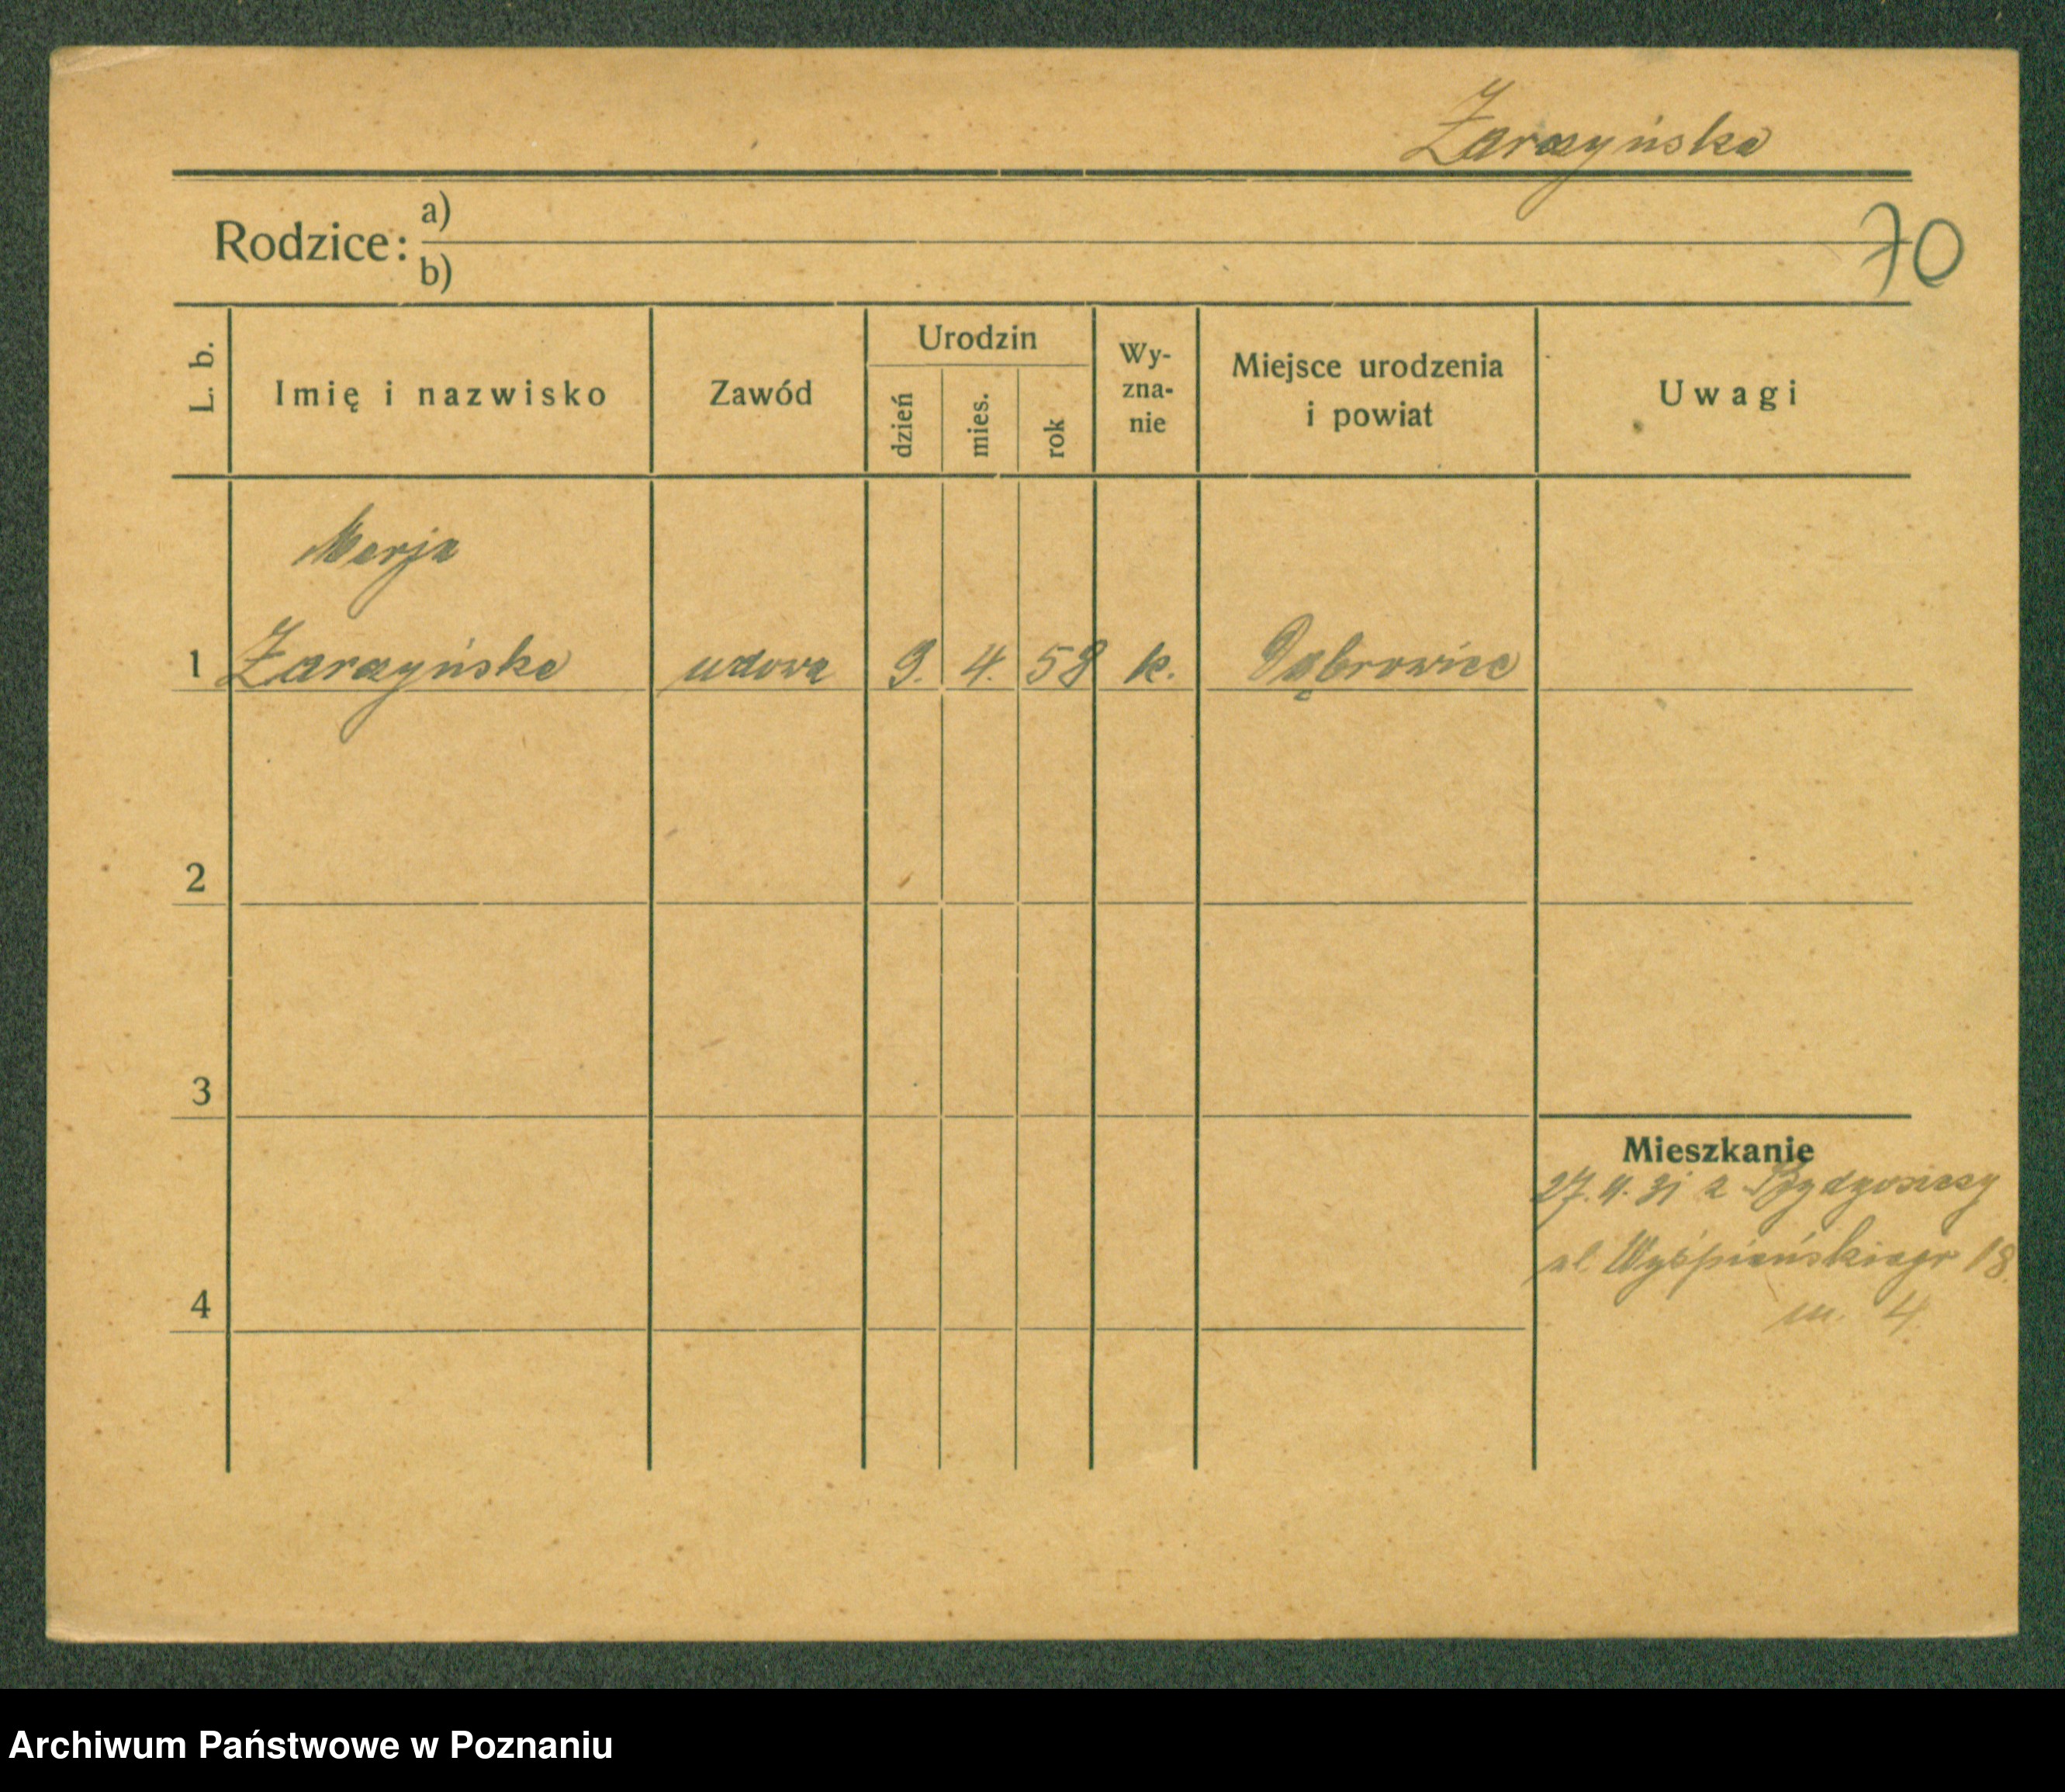 Żarczyńska
Rodzice:
a)
b)
70
L. b.
Imię i nazwisko
Zawód
Urodzin
dzień
mies.
rok
Wy-
zna-
nie
Miejsce urodzenia
i powiat
Uwagi
Marja
1 Żarczyńska wdowa 9. 4. 58 k.
2
3
4
Mieszkanie
27.4.31 z Bydgoszczy
ul. Wyśpiańskiego 18.
m. 4
Archiwum Państwowe w Poznaniu